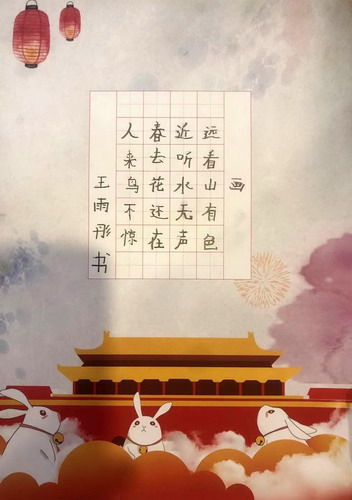 画
远看山有色
近听水无声
春去花还在
人来鸟不惊
王雨彤书